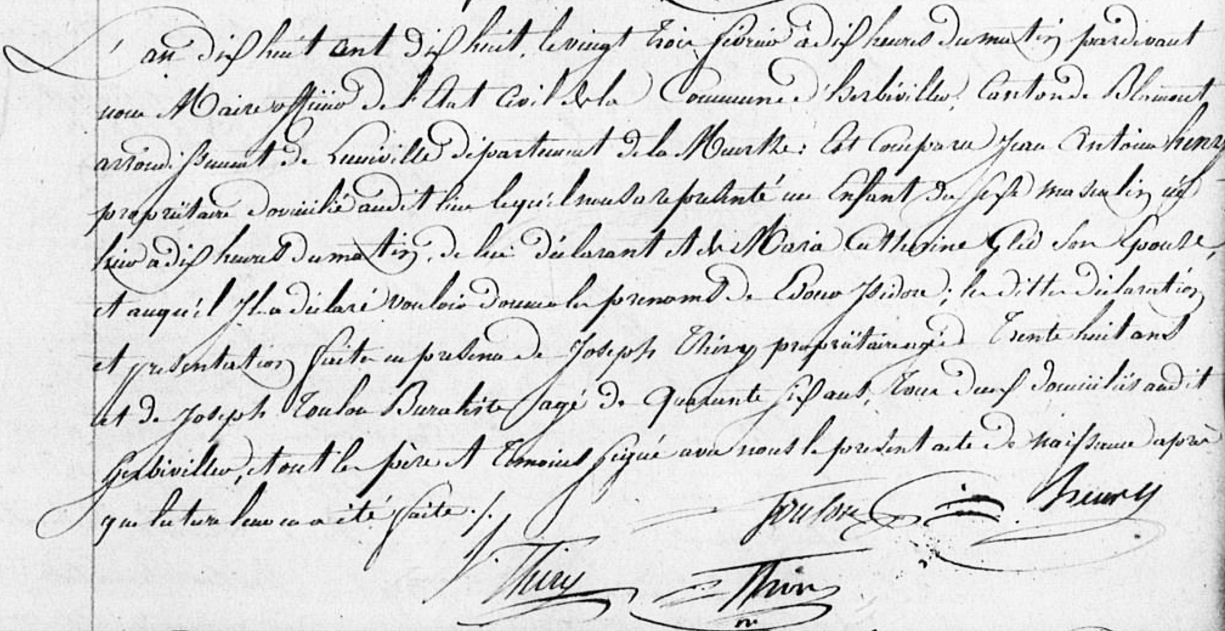 L'an dix huit cent dix huit, le vingt trois février à dix heures du matin pardevant
nous Maire officier de l'Etat Civil de la Commune d'herbiviller, Canton de Blamont
arrondissement de Luneville département de la Meurthe: Est Comparu Jean Antoine henry
propriétaire domicilié audit lieu lequel nous a représenté un Enfant du sexe masculin né
hier à dix heures du matin, de lui déclarant et de Maria Catherine son Epouse,
et auquel Il a déclaré vouloir donner les prenoms de Isidore; les dittes déclaration
et présentation faite en presence de Joseph Thiry propriétaire agé d Trente huit ans
et de Joseph Toulon Buraliste agé de Quarante six ans, Tous deux domiciliés audit
herbiviller, et ont les père et Temoins signé avec nous le present acte de naissance après
que lecture leur en a été faite ./.
Toulon henry
Thiry